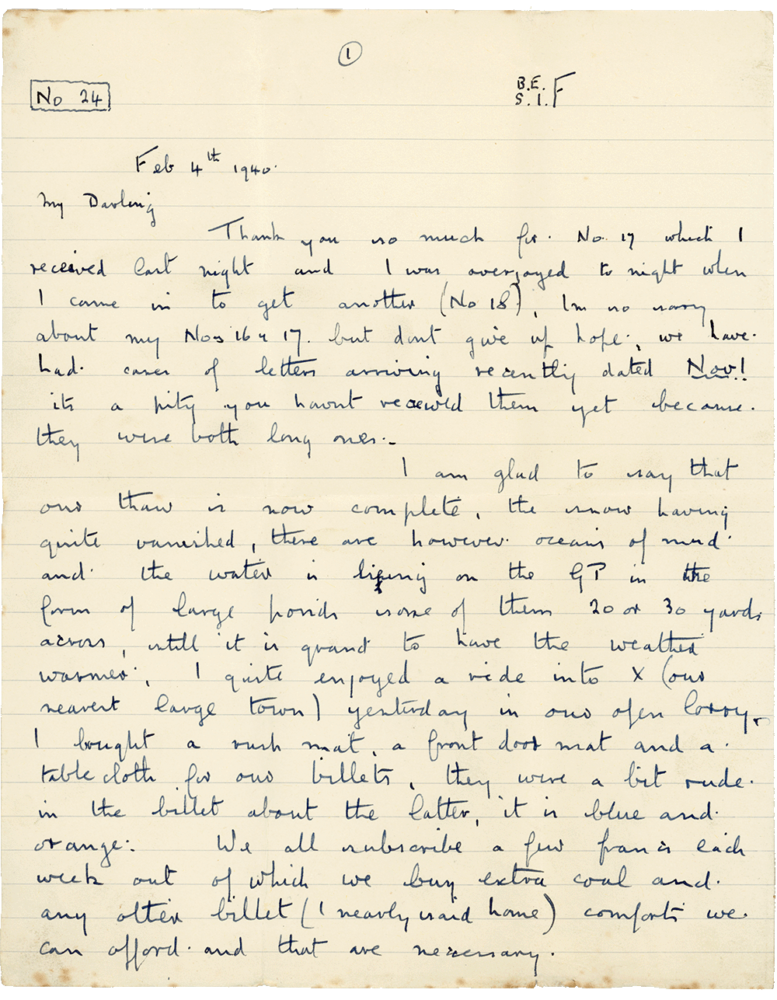 1
No 24
B.E.F
S.I.
Feb 4th 1940.
My Darling
Thank you so much for No 17 which I
received last night and I was overjoyed to night when
I came in to get another (No 18), Im so sorry
about my Nos 16 & 17. but dont give up hope, we have
had cases of letters arriving recently dated Nov!
its a pity you havnt received them yet because
they were both long ones.-
I am glad to say that
our thaw is now complete, the snow having
quite vanished, there are however oceans of mud
and the water is lying on the GP in the
form of large ponds some of them 20 or 30 yards
across, still it is grand to have the weather
warmer, I quite enjoyed a ride into X (our
nearest large town) yesterday in our open lorry,
I bought a rush mat, a front door mat and a
table cloth for our billets, they were a bit rude
in the billet about the latter, it is blue and
orange. We all subscribe a few francs each
week out of which we buy extra coal and
any other billet (I nearly said home) comforts we
can afford and that are necessary.